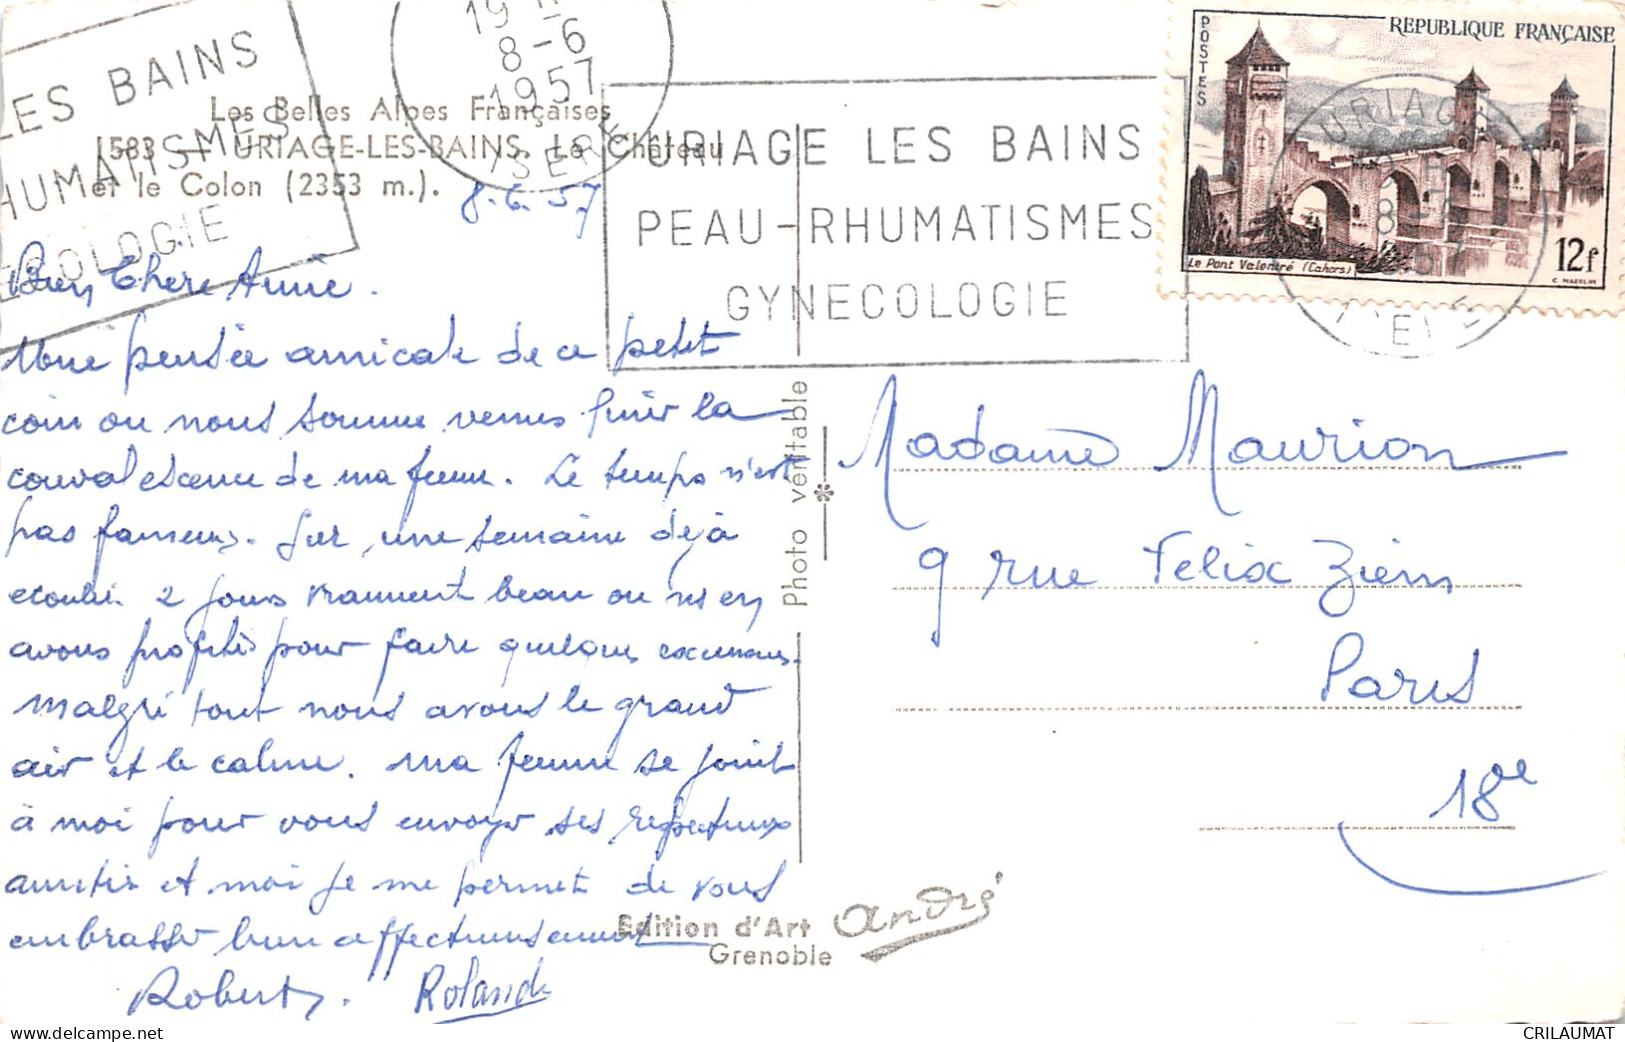 LES BAINS
HUMATISMES
GYNECOLOGIE
8-6
1957
ISERE
Les Belles Alpes Françaises
1583 - URIAGE-LES-BAINS, Le Château
et le Colon (2353 m.).
8.6.57
URIAGE LES BAINS
PEAU-RHUMATISMES
GYNECOLOGIE
POSTES
REPUBLIQUE FRANÇAISE
Le Pont Valentré (Cahors)
12f
URIAGE
Bien Chere Annie.
Une pensée amicale de ce petit
coin ou nous somme venus finir la
convalescence de ma femme. Le temps n'est
pas fameux. Sur une semaine déjà
ecoulée 2 jours vraiment beau ou ns en
avons profités pour faire quelques excursions.
malgré tout nous avons le grand
air et le calme. ma femme se joint
à moi pour vous envoyer ses respectueuses
amitiés et moi je me permet de vous
embrasser bien affectueusement
Robert. Rolande
Photo véritable
Edition d'Art André
Grenoble
Madame Maurion
9 rue Felix Ziem
Paris
18e
delcampe.net
CRILAUMAT